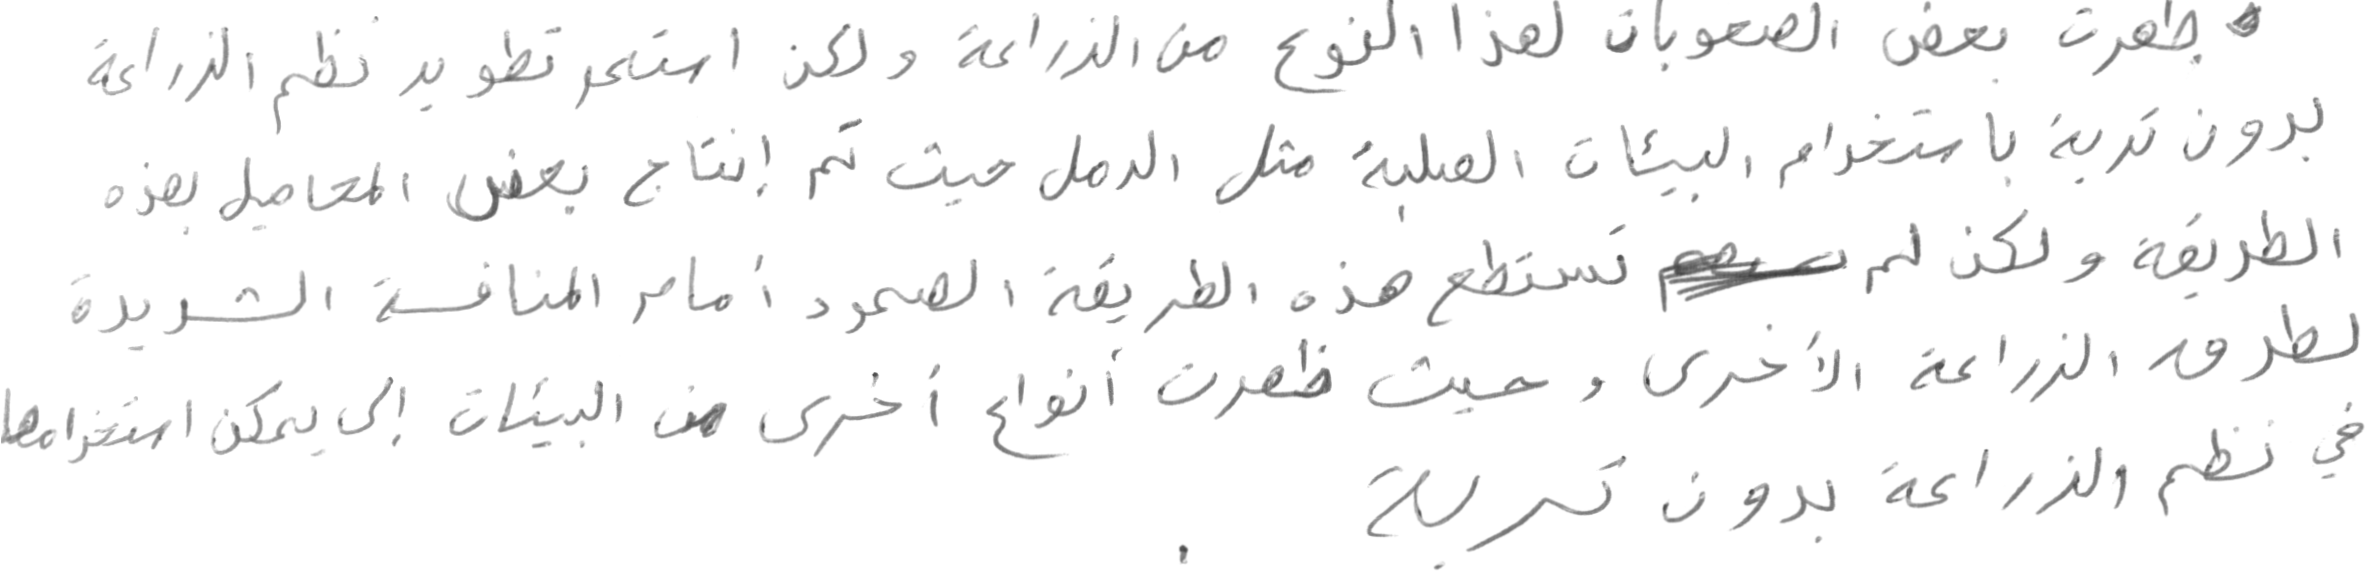 ظهرت بعض الصعوبات لهذا النوع من الزراعة ولكن استمر تطوير نظم الزراعة
بدون تربة باستخدام البيئات الصلبة مثل الرمل حيث تم إنتاج بعض المحاصيل بهذه
الطريقة ولكن لم تستطع هذه الطريقة الصمود أمام المنافسة الشديدة
لطرق الزراعة الأخرى وحيث ظهرت أنواع أخرى من البيئات إلى يمكن استخدامها
في نظم الزراعة بدون تربة .